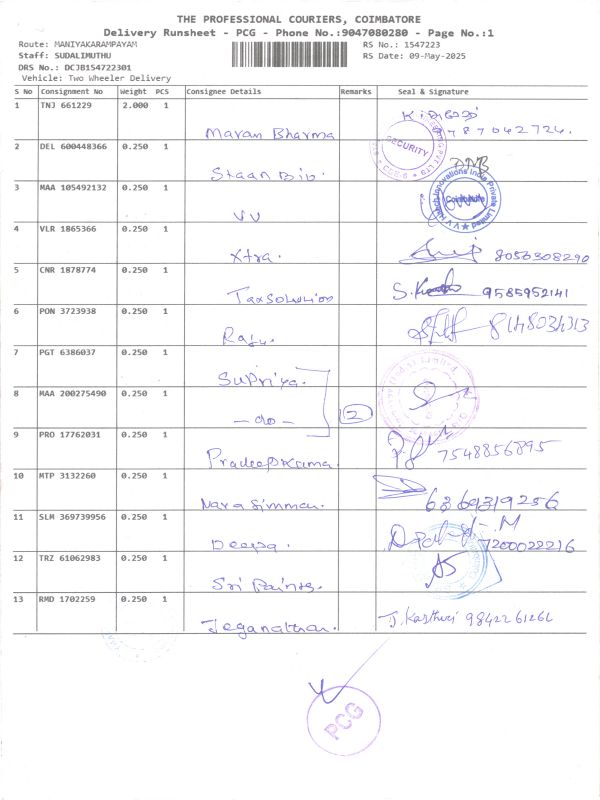 THE PROFESSIONAL COURIERS, COIMBATORE
Delivery Runsheet - PCG - Phone No.:9047080280 - Page No.:1
Route: MANIYAKARAMPAYAM RS No.: 1547223
Staff: SUDALIMUTHU RS Date: 09-May-2025
DRS No.: DCJB154722301
Vehicle: Two Wheeler Delivery
S No Consignment No Weight PCS Consignee Details Remarks Seal & Signature
1 TNJ 661229 2.000 1
Maran Bharma 787042724.
SECURITY
2 DEL 600448366 0.250 1
Staan Bio.
3 MAA 105492132 0.250 1
VV
Coimbatore
4 VLR 1865366 0.250 1
Xtra. 8056308290
5 CNR 1878774 0.250 1
Taxsolution 9585952141
6 PON 3723938 0.250 1
Raju. 8148034313
7 PGT 6386037 0.250 1
Supriya.
8 MAA 200275490 0.250 1
-do- 2
9 PRO 17762031 0.250 1
Pradeepkuma. 7548856895
10 MTP 3132260 0.250 1
Narasimman. 6369319256
11 SLM 369739956 0.250 1
Deepa. 7200022216
12 TRZ 61062983 0.250 1
Sri Paints.
13 RMD 1702259 0.250 1
Jeganathan. J. Karthuri 9842261266
PCG